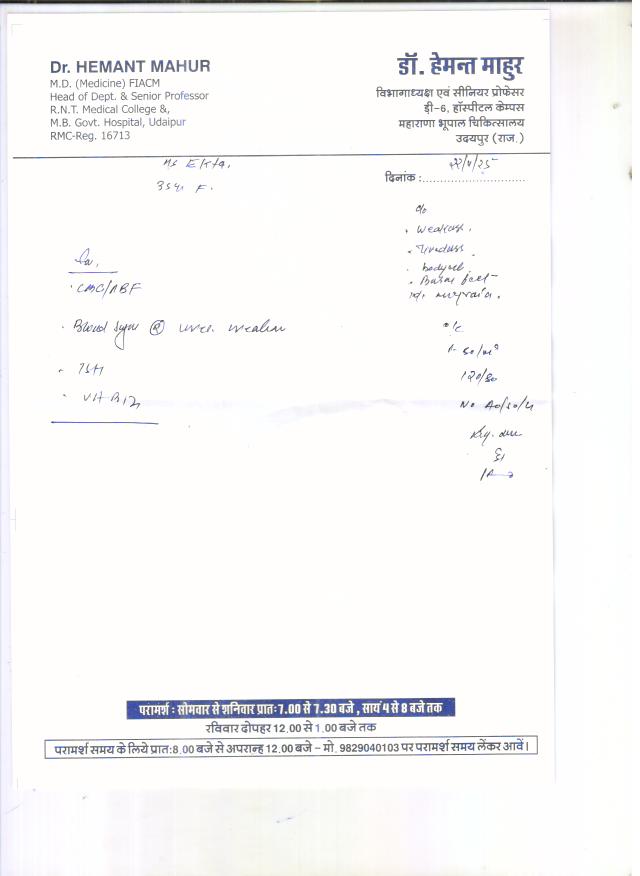 Dr. HEMANT MAHUR
M.D. (Medicine) FIACM
Head of Dept. & Senior Professor
R.N.T. Medical College &,
M.B. Govt. Hospital, Udaipur
RMC-Reg. 16713
डॉ. हेमन्त माहुर
विभागाध्यक्ष एवं सीनियर प्रोफेसर
डी-6, हॉस्पीटल केम्पस
महाराणा भूपाल चिकित्सालय
उदयपुर (राज.)
Ms EKTA.
F.
दिनांक :
c/o
Weakness.
Tiredness.
bodyache.
feet
CBC/PBF
Blood Sugar
TSH
Vit B12
o/e
120/80
No
परामर्श : सोमवार से शनिवार प्रातः 7.00 से 7.30 बजे , सायं 4 से 8 बजे तक
रविवार दोपहर 12.00 से 1.00 बजे तक
परामर्श समय के लिये प्रात:8.00 बजे से अपरान्ह 12.00 बजे – मो. 9829040103 पर परामर्श समय लेंकर आवें।